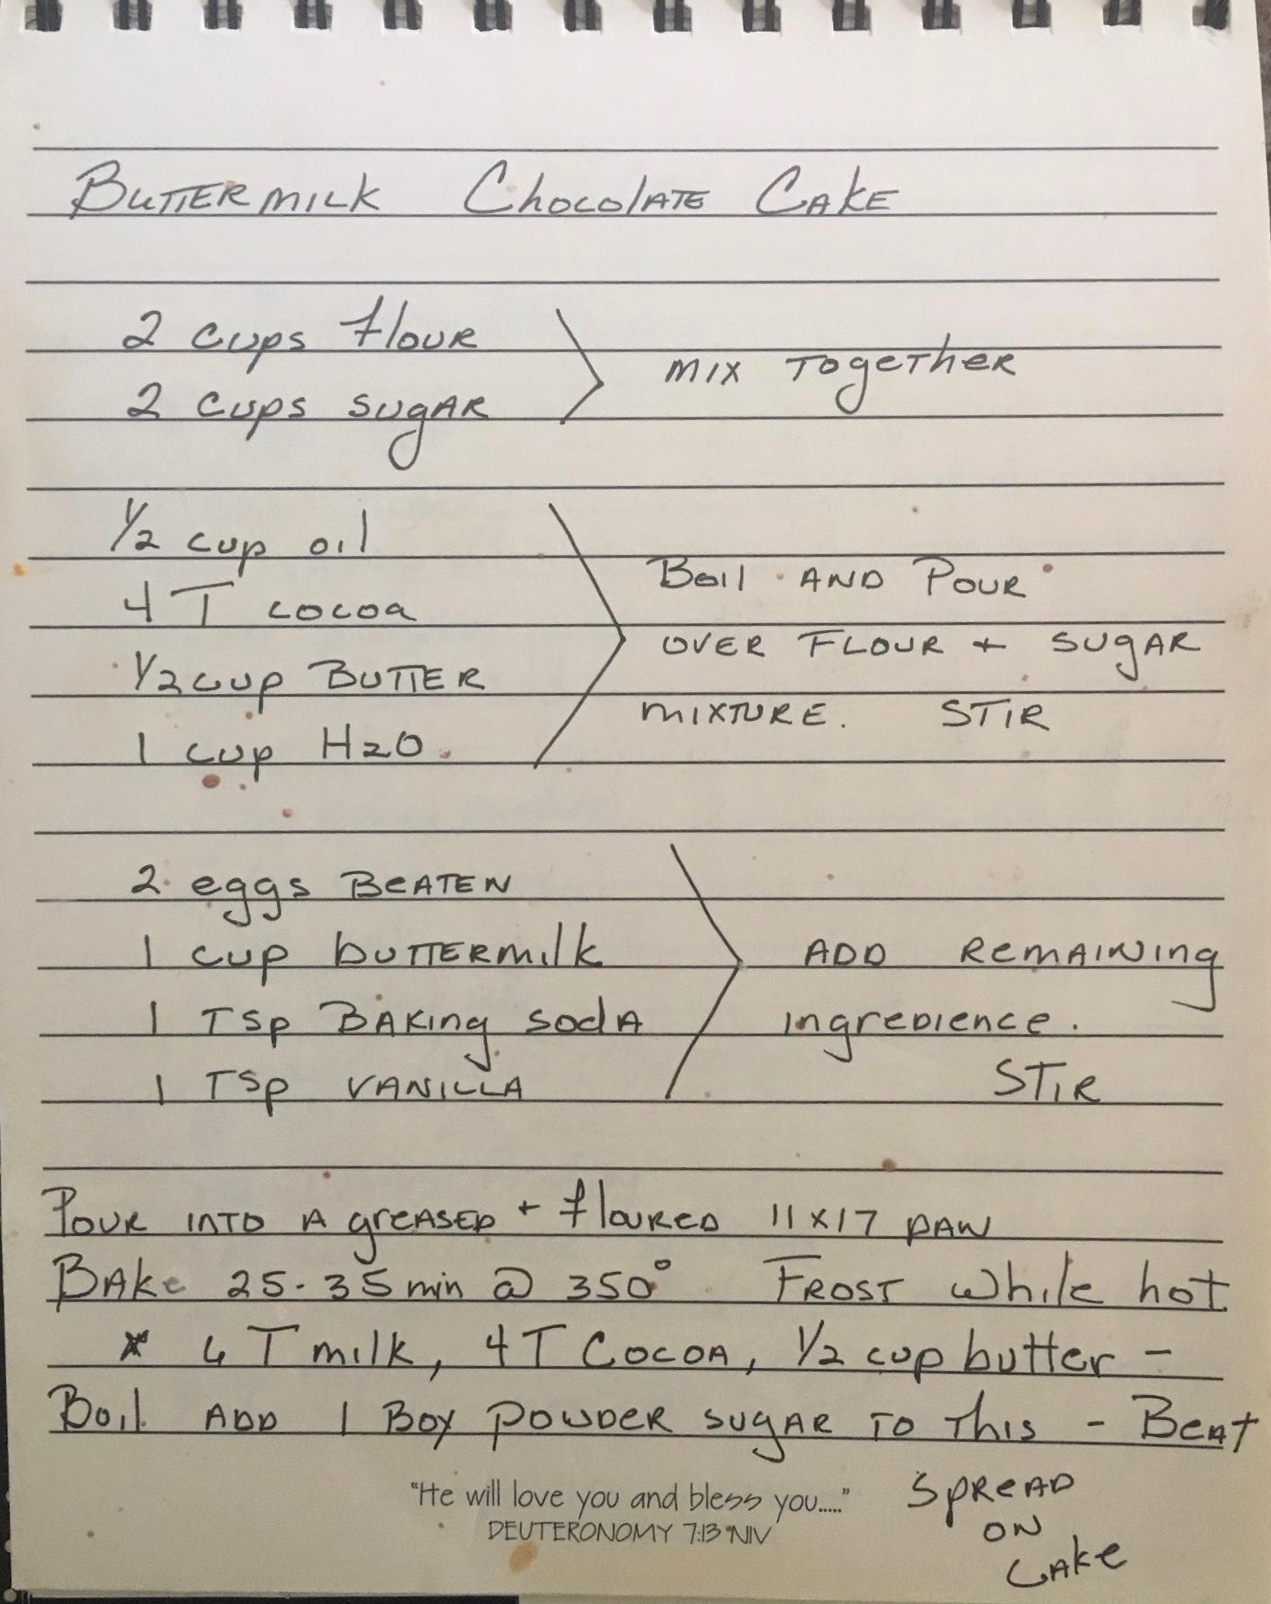 Buttermilk Chocolate Cake
2 cups flour
2 cups sugar
mix together
1/2 cup oil
4 T cocoa
1/2 cup Butter
1 cup H2O
Boil and Pour
over flour + sugar
mixture. Stir
2 eggs Beaten
1 cup buttermilk
1 Tsp Baking soda
1 Tsp vanilla
Add Remaining
ingredience.
Stir
Pour into a greased + floured 11x17 pan
Bake 25-35 min @ 350° Frost while hot
* 6 T milk, 4 T Cocoa, 1/2 cup butter -
Boil Add 1 Box powder sugar to this - Beat
Spread
on
Cake
"He will love you and bless you....."
DEUTERONOMY 7:13 NIV